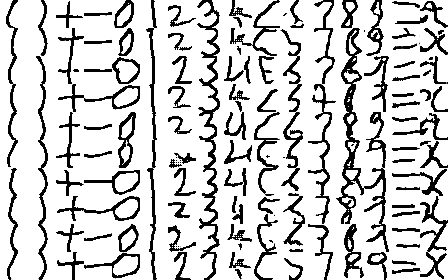 ( ) + - 0 1 2 3 4 7 8 9 = x
( ) + - 0 1 2 3 4 7 8 9 = x
( ) + - 0 1 2 3 4 7 8 9 = x
( ) + - 0 1 2 3 4 7 8 9 = x
( ) + - 0 1 2 3 4 7 8 9 = x
( ) + - 0 1 3 4 7 8 9 = x
( ) + - 0 1 2 3 4 7 8 9 = x
( ) + - 0 1 2 3 4 7 8 9 = x
( ) + - 0 1 2 3 4 7 8 9 = x
( ) + - 0 1 2 3 4 7 8 9 = x